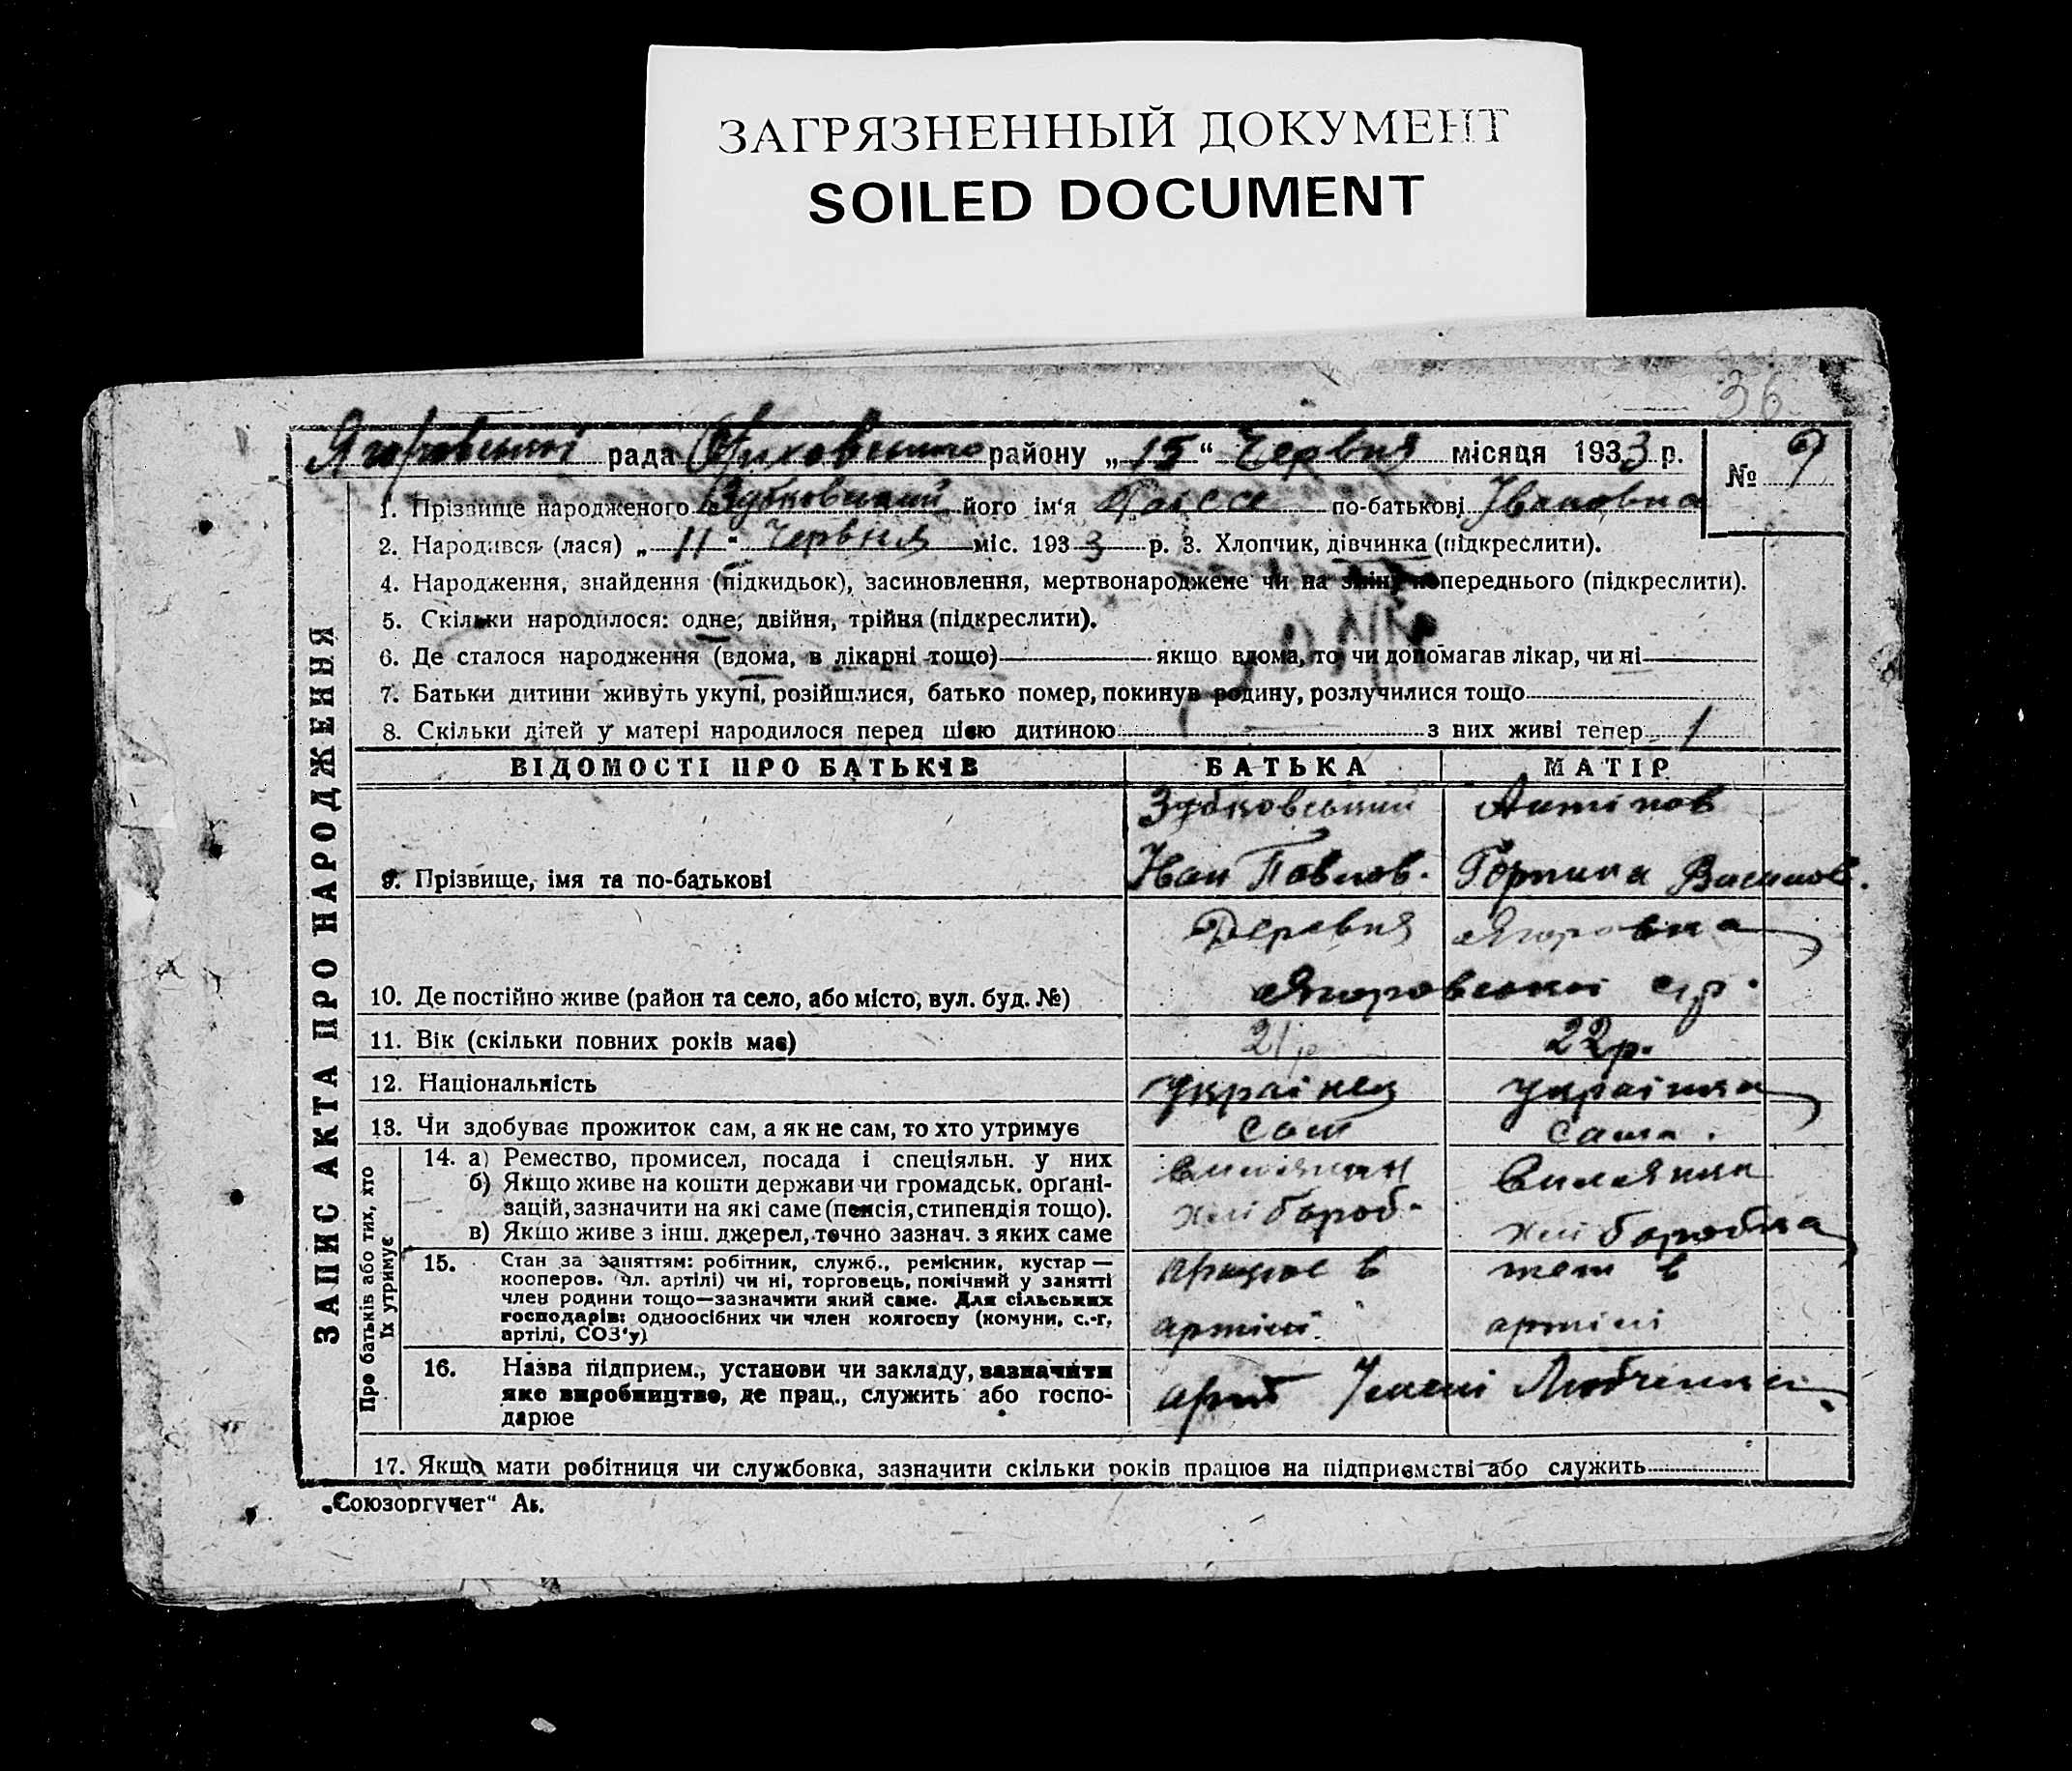 ЗАГРЯЗНЕННЫЙ ДОКУМЕНТ
SOILED DOCUMENT
36
рада районy „15“ Червня місяця 1933 р. № 9
ЗАПИС АКТА ПРО НАРОДЖЕННЯ
1. Прізвище народженого його ім'я по-батькові Івановна
2. Народився (лася) „11“ Червня міс. 1933 р. 3. Хлопчик, дівчинка (підкреслити).
4. Народження, знайдення (підкидьок), засиновлення, мертвонароджене чи на зміну попереднього (підкреслити).
5. Скільки народилося: одне, двійня, трійня (підкреслити).
6. Де сталося народження (вдома, в лікарні тощо) якщо вдома, то чи допомагав лікар, чи ні
7. Батьки дитини живуть укупі, розійшлися, батько помер, покинув родину, розлучилися тощо
8. Скільки дітей у матері народилося перед цією дитиною з них живі тепер 1
ВІДОМОСТІ ПРО БАТЬКІВ БАТЬКА МАТІР
Зубковський Антіпов
9. Прізвище, імя та по-батькові Іван Павлов. Горпина Василов.
Деревня Ягоровка
10. Де постійно живе (район та село, або місто, вул. буд. №) Ягоровської с/р.
11. Вік (скільки повних років має) 21р 22р.
12. Національність українец українка
13. Чи здобуває прожиток сам, а як не сам, то хто утримує сам сама.
Про батьків або тих, хто їх утримує
14. а) Ремество, промисел, посада і спеціяльн. у них
б) Якщо живе на кошти держави чи громадськ. орґані-
зацій, зазначити на які саме (пенсія, стипендія тощо). хлібороб.
в) Якщо живе з інш. джерел, точно зазнач. з яких саме хліборобка
15. Стан за заняттям: робітник, служб., ремісник, кустар — працює в теж в
кооперов. (чл. артілі) чи ні, торговець, помічний у занятті
член родини тощо—зазначити який саме. Для сільських
господарів: одноосібних чи член колгоспу (комуни, с.-г. артілі артілі
артілі, СОЗ'у)
16. Назва підприєм., установи чи закладу, зазначити
яке виробництво, де прац., служить або госпо- арт Імені Любченка
дарює
17. Якщо мати робітниця чи службовка, зазначити скільки років працює на підприємстві або служить
„Союзоргучет“